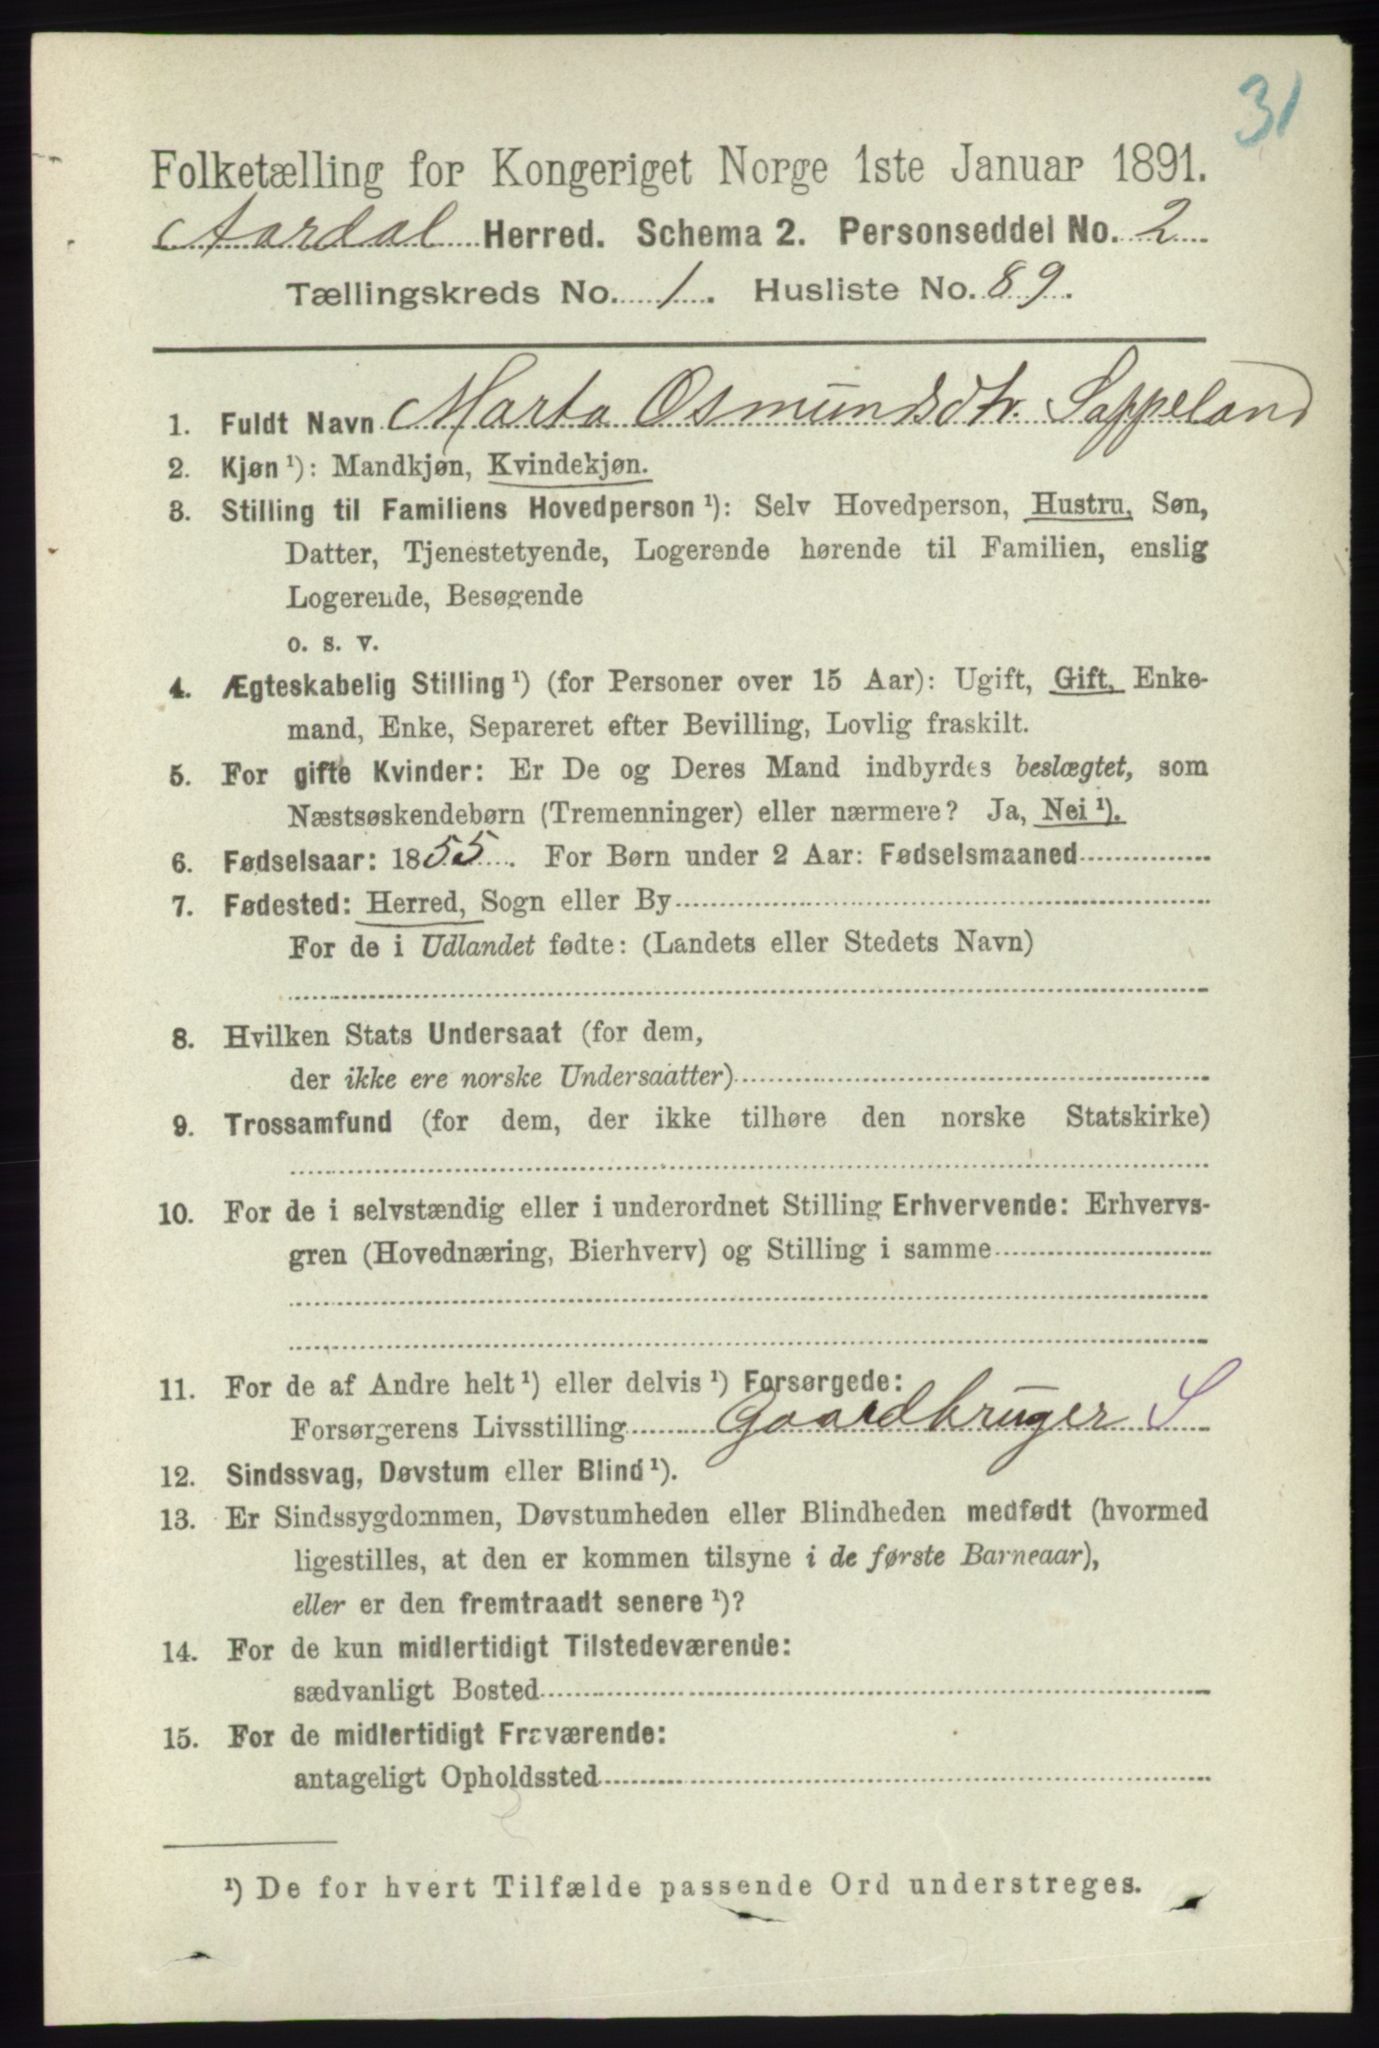 31
Folketælling for Kongeriget Norge 1ste Januar 1891.
Aardal Herred. Schema 2. Personseddel No. 2
Tællingskreds No. 1. Husliste No. 89.
1. Fuldt Navn Marta Osmundsdtr. Sappeland
2. Kjøn ¹): Mandkjøn, Kvindekjøn.
3. Stilling til Familiens Hovedperson ¹): Selv Hovedperson, Hustru, Søn,
Datter, Tjenestetyende, Logerende hørende til Familien, enslig
Logerende, Besøgende
o. s. v.
4. Ægteskabelig Stilling ¹) (for Personer over 15 Aar): Ugift, Gift, Enke-
mand, Enke, Separeret efter Bevilling, Lovlig fraskilt.
5. For gifte Kvinder: Er De og Deres Mand indbyrdes beslægtet, som
Næstsøskendebørn (Tremenninger) eller nærmere? Ja, Nei ¹).
6. Fødselsaar: 1855. For Børn under 2 Aar: Fødselsmaaned
7. Fødested: Herred, Sogn eller By
For de i Udlandet fødte: (Landets eller Stedets Navn)
8. Hvilken Stats Undersaat (for dem,
der ikke ere norske Undersaatter)
9. Trossamfund (for dem, der ikke tilhøre den norske Statskirke)
10. For de i selvstændig eller i underordnet Stilling Erhvervende: Erhvervs-
gren (Hovednæring, Bierhverv) og Stilling i samme
11. For de af Andre helt ¹) eller delvis ¹) Forsørgede:
Forsørgerens Livsstilling Gaardbruger S
12. Sindssvag, Døvstum eller Blind ¹).
13. Er Sindssygdommen, Døvstumheden eller Blindheden medfødt (hvormed
ligestilles, at den er kommen tilsyne i de første Barneaar),
eller er den fremtraadt senere ¹)?
14. For de kun midlertidigt Tilstedeværende:
sædvanligt Bosted
15. For de midlertidigt Fraværende:
antageligt Opholdssted
¹) De for hvert Tilfælde passende Ord understreges.